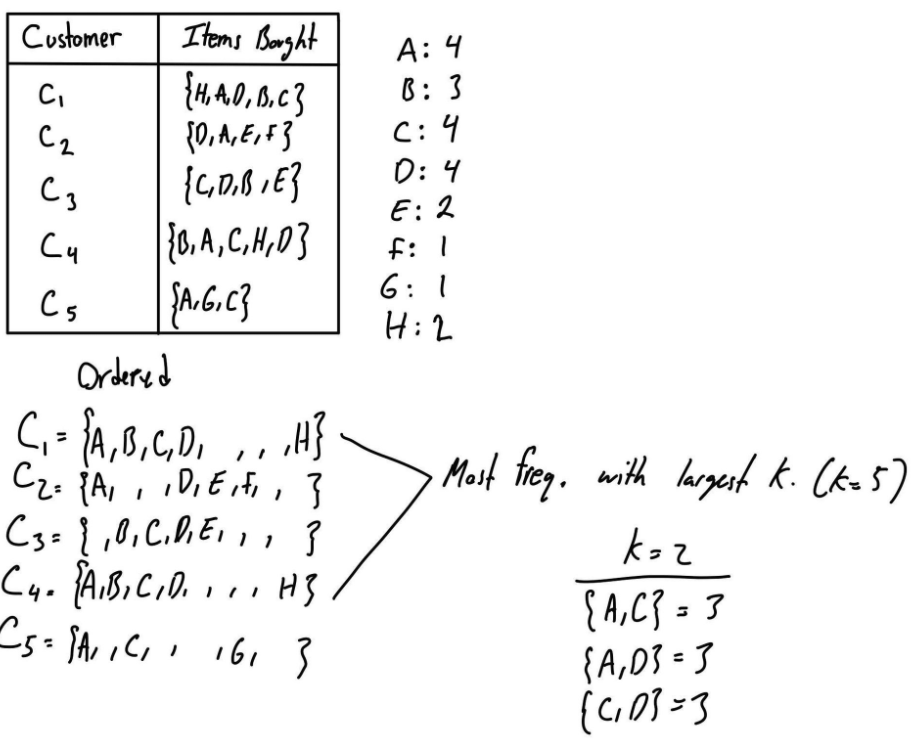 Customer Items Bought
C1 {H,A,D,B,C}
C2 {D,A,E,F}
C3 {C,D,B,E}
C4 {B,A,C,H,D}
C5 {A,G,C}
A: 4
B: 3
C: 4
D: 4
E: 2
F: 1
G: 1
H: 2
Ordered
C1= {A,B,C,D, , , ,H}
C2= {A, , ,D,E,F, , }
C3= { ,B,C,D,E, , , }
C4= {A,B,C,D, , , , H}
C5= {A, ,C, , ,G, }
Most freq. with largest k. (k=5)
k=2
{A,C} = 3
{A,D} = 3
{C,D} = 3